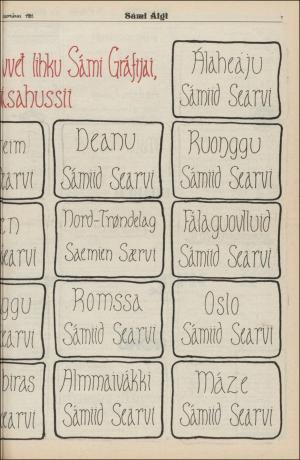 Sámi Áigi
7
vvet lihku Sámi Gráfijai,
ásahussii
Álaheaju
Sámiid Searvi
eim
earvi
Deanu
Sámiid Searvi
Ruonggu
Sámiid Searvi
en
earvi
Nord-Trøndelag
Saemien Særvi
Fálaguovlluid
Sámiid Searvi
ggu
earvi
Romssa
Sámiid Searvi
Oslo
Sámiid Searvi
biras
Searvi
Álmmaivákki
Sámiid Searvi
Máze
Sámiid Searvi